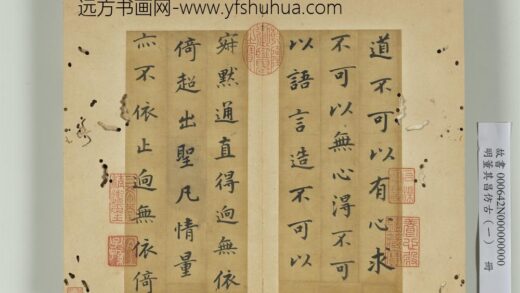 远方书画网-www.yfshuhua.com
道不可以有心求
不可以無心得不可
以語言造不可以
寂默通直得迥無依
倚超出聖凡情量
亦不依止迥無依倚
故書 000642N000000000
明董其昌仿古(一) 冊